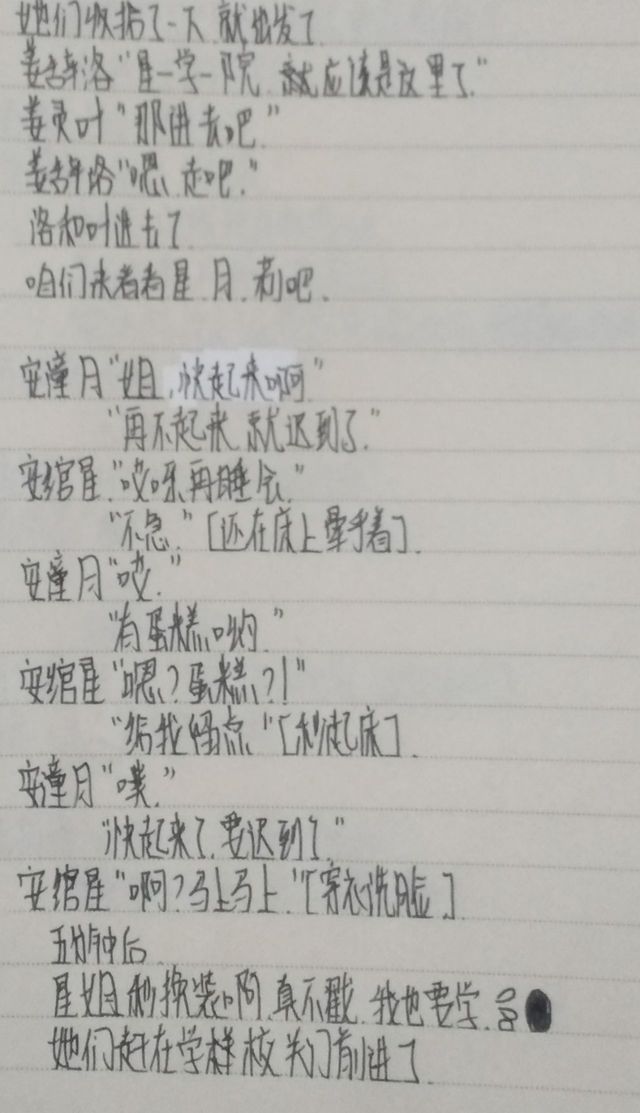 她们收拾了一下 就出发了
姜 洛“星一学一院 就应该是这里了”
姜灵叶“那进去吧”
姜 洛“嗯、走吧.”
洛和叶进去了
咱们来看看星.月.莉吧.
安潼月“姐,快起来啊”
“再不起来 就迟到了.”
安绾星“哎呀再睡会.”
“不急.”[还在床上 着].
安潼月“哎.”
“有蛋糕哟.”
安绾星“嗯?蛋糕?!”
“给我留点”[秒起床].
安潼月“噗.”
“快起来了.要迟到了”
安绾星“啊?马上马上.”[穿衣洗脸].
五分钟后.
星姐秒换装啊.真不戳.我也要学.
她们赶在学校关门前进了